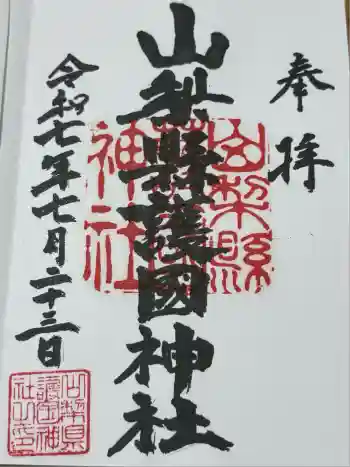 奉拝
山梨縣護國神社
令和七年七月二十三日
山梨縣護國神社
山梨県護国神社之印